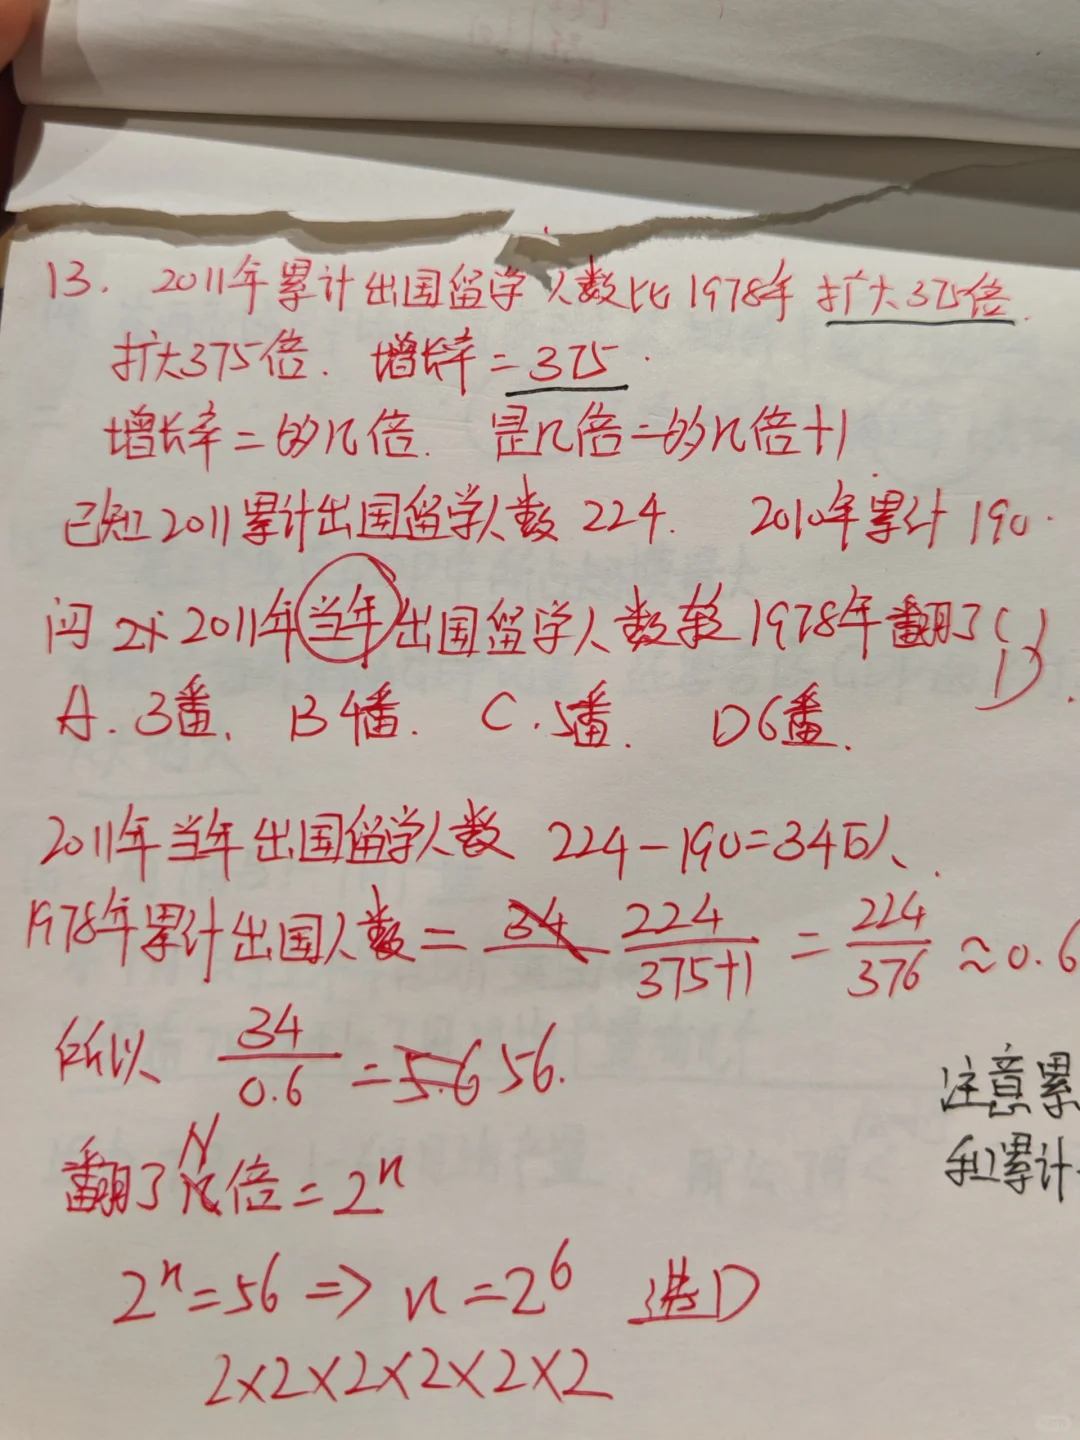 13. 2011年累计出国留学人数比1978年扩大375倍.
扩大375倍. 增长率=375.
增长率=的几倍. 是几倍=的几倍+1.
已知2011累计出国留学人数224. 2010年累计190.
问 2011年当年出国留学人数较1978年翻了( )
D
A.3番. B4番. C.5番. D6番.
2011年当年出国留学人数 224-190=34万人.
1978年累计出国人数= 34 224/375+1 = 224/376 ≈0.6
所以 34/0.6 =5.6 56.
注意累
和累计
翻了N倍=2ⁿ
2ⁿ=56 => n=2⁶ 选D
2×2×2×2×2×2